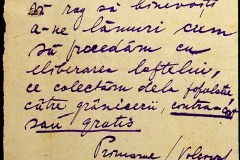 Să rog să binevoiți
a-ne lămuri cum
să procedăm cu
eliberarea laptelui,
ce colectăm dela populație
către grăniceri,
sau gratis
Primarie /